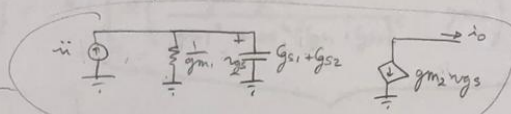 ii
1/gm1
+
vgs
Cgs1 + Cgs2
gm2 vgs
io